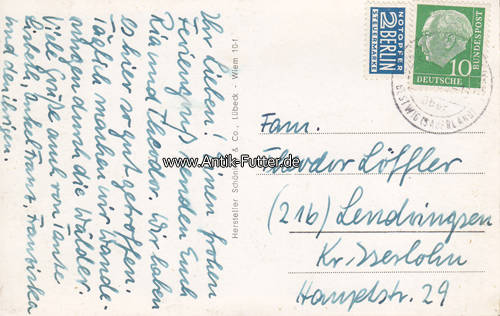 Ihr Lieben! Einen frohen
Feriengruß senden Euch
Ria und Theodor. Wir haben
es hier so gut getroffen.
Täglich machen wir Wande-
rungen durch die Wälder.
Viele Grüße auch von Tante
und den übrigen.
Hersteller Schöning & Co., Lübeck - Wiem 10-f
NOTOPFER
2 BERLIN
STEUERMARKE
DEUTSCHE
BUNDESPOST
10
BESTWIG (SAUERLAND)
www.Antik-Futter.de
Fam.
Theodor Löffler
(21b) Lendringsen
Kr. Iserlohn
Hauptstr. 29